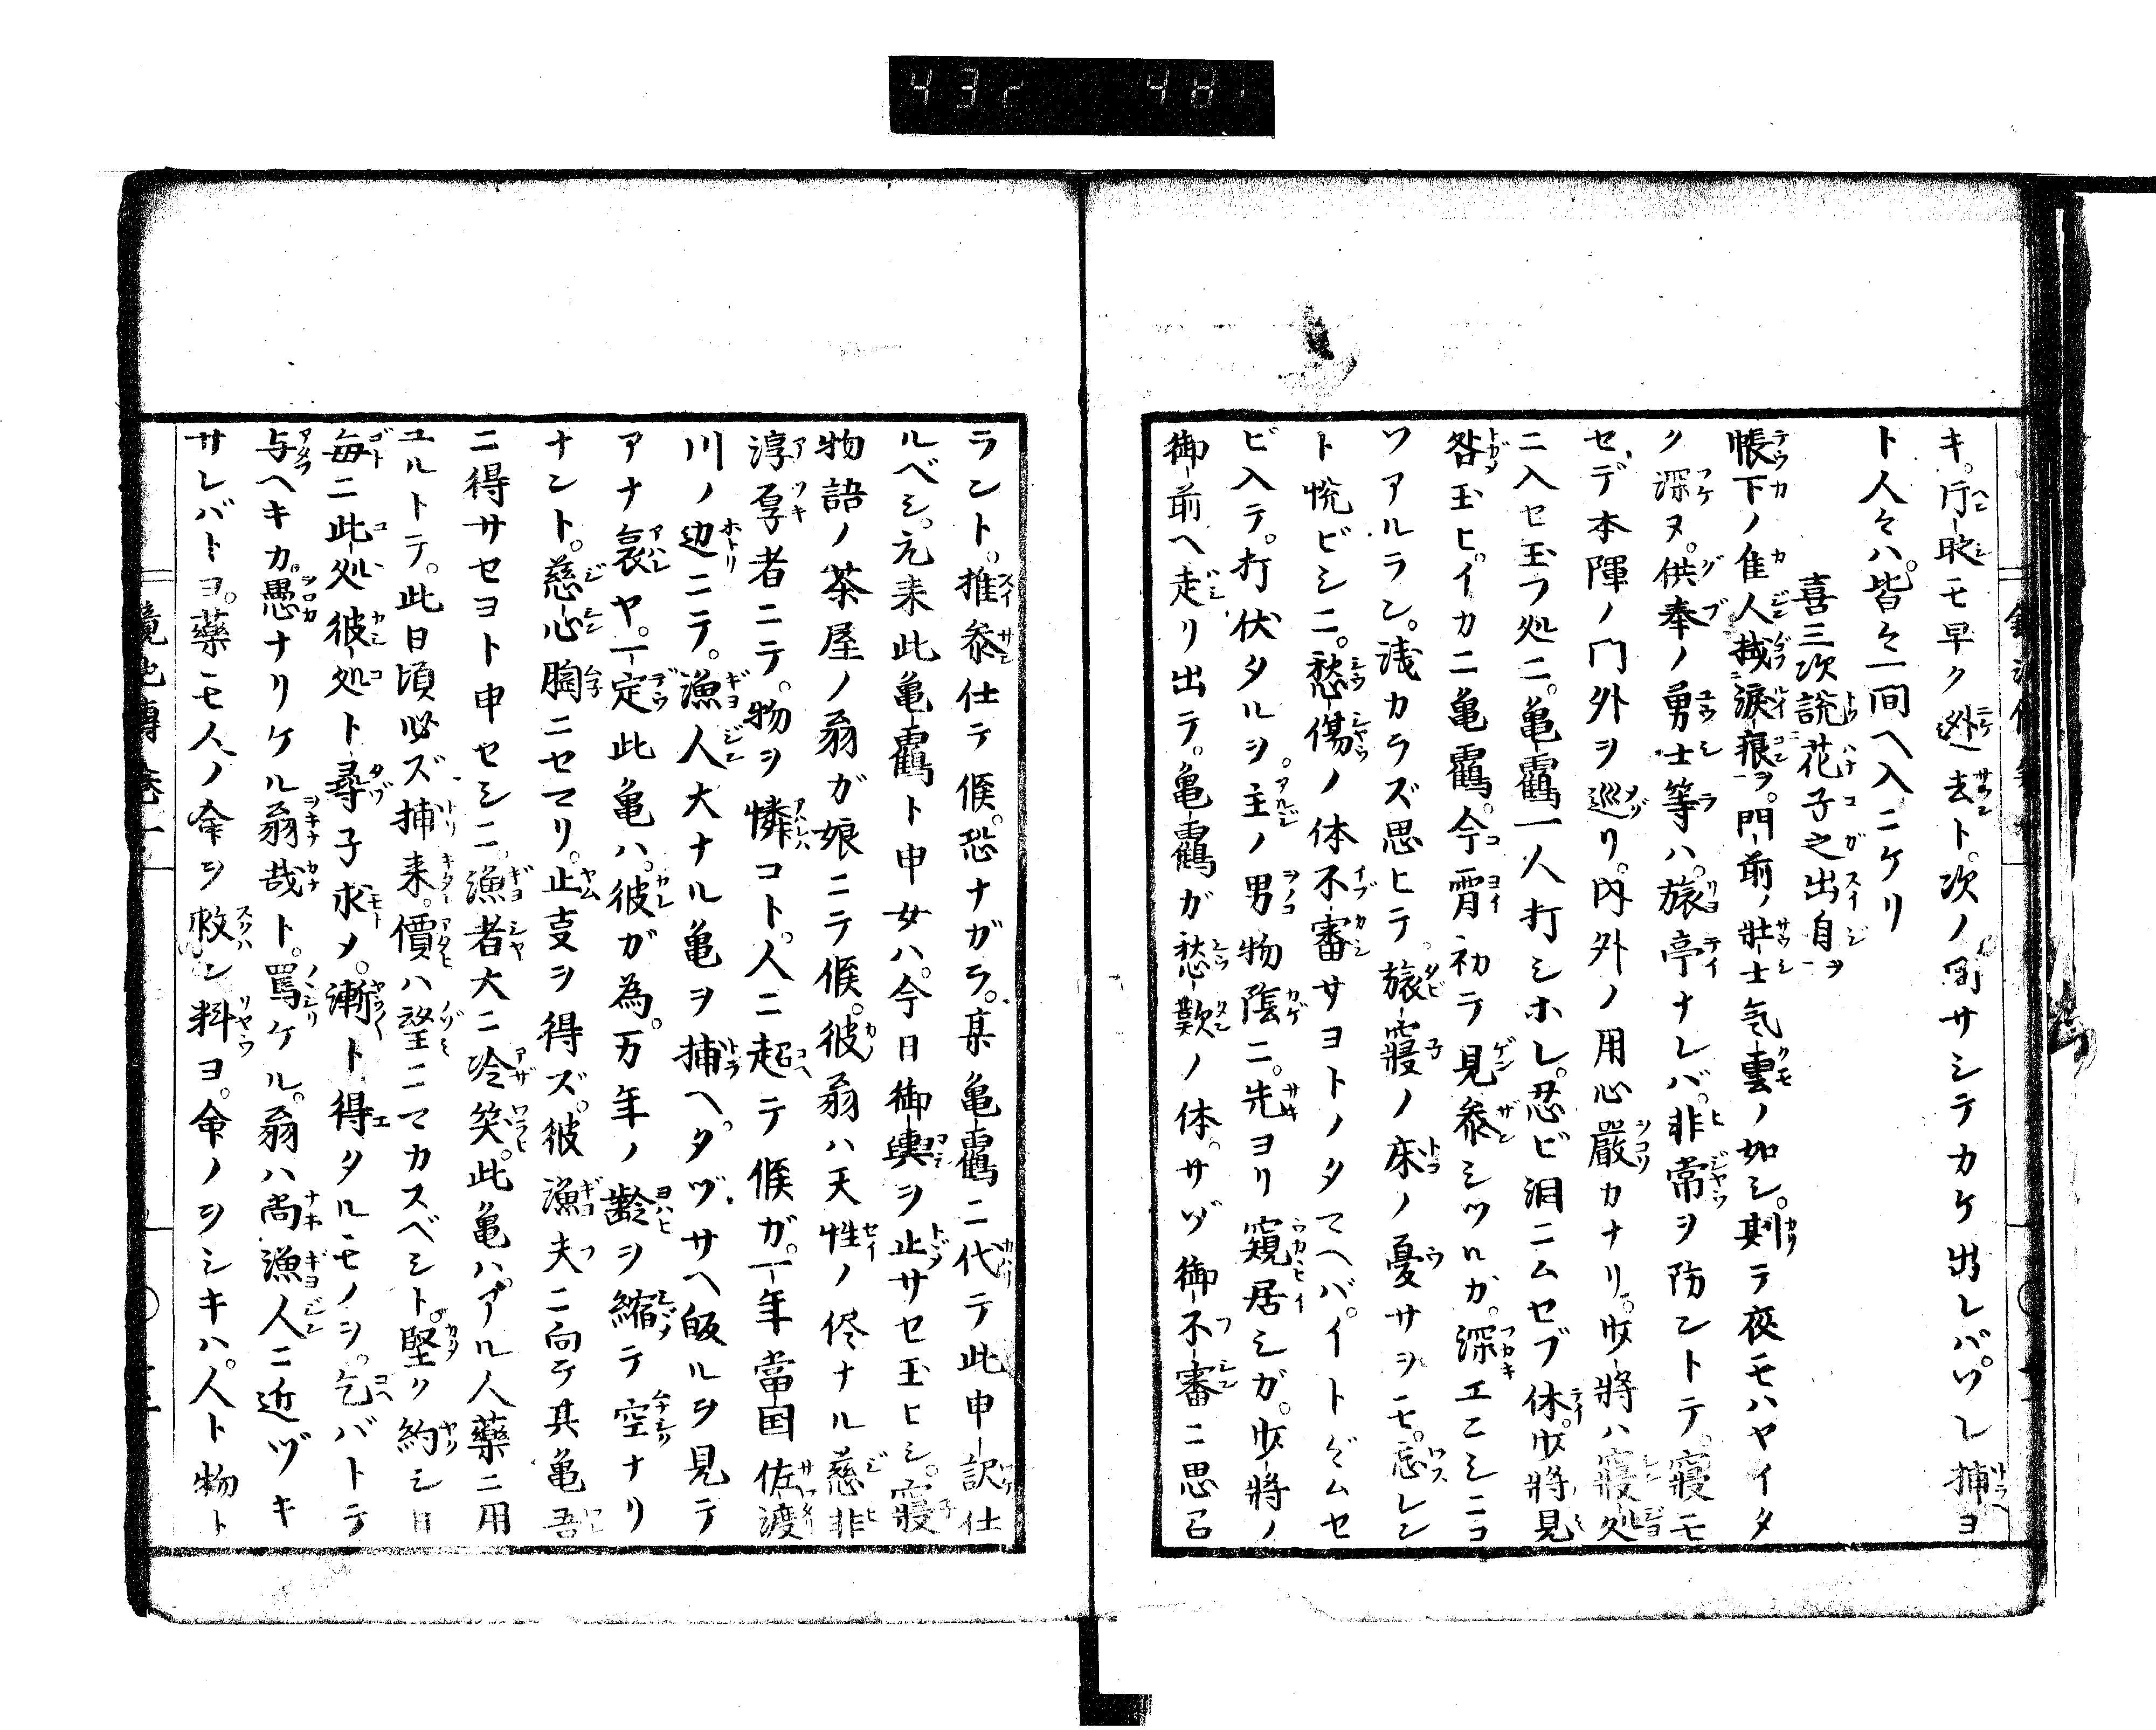 キ。庁㫼モ早ク逊去ト。次ノ间サシテカケ出レバ。ソレ捕ヨ
ト人々ハ。皆々一間ヘ入ニケリ
喜三次説花子之出自ヲ
帳下ノ佳人掩涙痕ヲ。門前ノ壮士気雲ノ如シ。剋テ夜モハヤイタ
ク深ヌ。供奉ノ勇士等ハ。旅亭ナレバ。非常ヲ防ントテ。寝モ
セデ本陣ノ門外ヲ巡リ。内外ノ用心嚴カナリ。少将ハ寝処
ニ入セ玉フ処ニ。亀靍一人打シホレ。忍ビ泪ニムセブ体。少将見
咎玉ヒ。イカニ亀靍。今宵初テ見参シツルガ。深エニシニコ
ソアルラン。浅カラズ思ヒテ。旅寝ノ床ノ憂サヲモ。忘レン
ト悦ビシニ。愁傷ノ体不審サヨトノタマヘバ。イトヾムセ
ビ入テ。打伏タルヲ。主ノ男物陰ニ。先ヨリ窺居シガ。少将ノ
御前ヘ走リ出テ。亀靍ガ愁歎ノ体。サゾ御不審ニ思召
ラント。推参仕テ候。恐ナガラ。某亀靍ニ代テ此申訳仕
ルベシ。元来此亀靍ト申女ハ。今日御輿ヲ止サセ玉ヒシ。寝
物語ノ茶屋ノ翁ガ娘ニテ候。彼翁ハ天性ノ侭ナル慈非
淳厚者ニテ。物ヲ憐コト。人ニ超テ候ガ。一年當国佐渡
川ノ辺ニテ。漁人大ナル亀ヲ捕ヘ。タヅサヘ皈ルヲ見テ
アナ哀ヤ。一定此亀ハ。彼ガ為。万年ノ齢ヲ縮テ空ナリ
ナント。慈心胸ニセマリ。止㕝ヲ得ズ。彼漁夫ニ向テ其亀吾
ニ得サセヨト申セシニ。漁者大ニ冷笑。此亀ハ。アル人藥ニ用
ユルトテ。此日頃必ズ捕来。價ハ望ニマカスベシト。堅ク約シ日
毎ニ此処彼処ト尋子求メ。漸ト得タルモノヲ。乞バトテ
与ヘキカ。愚ナリケル翁哉ト。罵ケル。翁ハ尚漁人ニ近ヅキ
サレバトヨ。藥モ人ノ命ヲ救ン料ヨ。命ノヲシキハ。人ト物ト